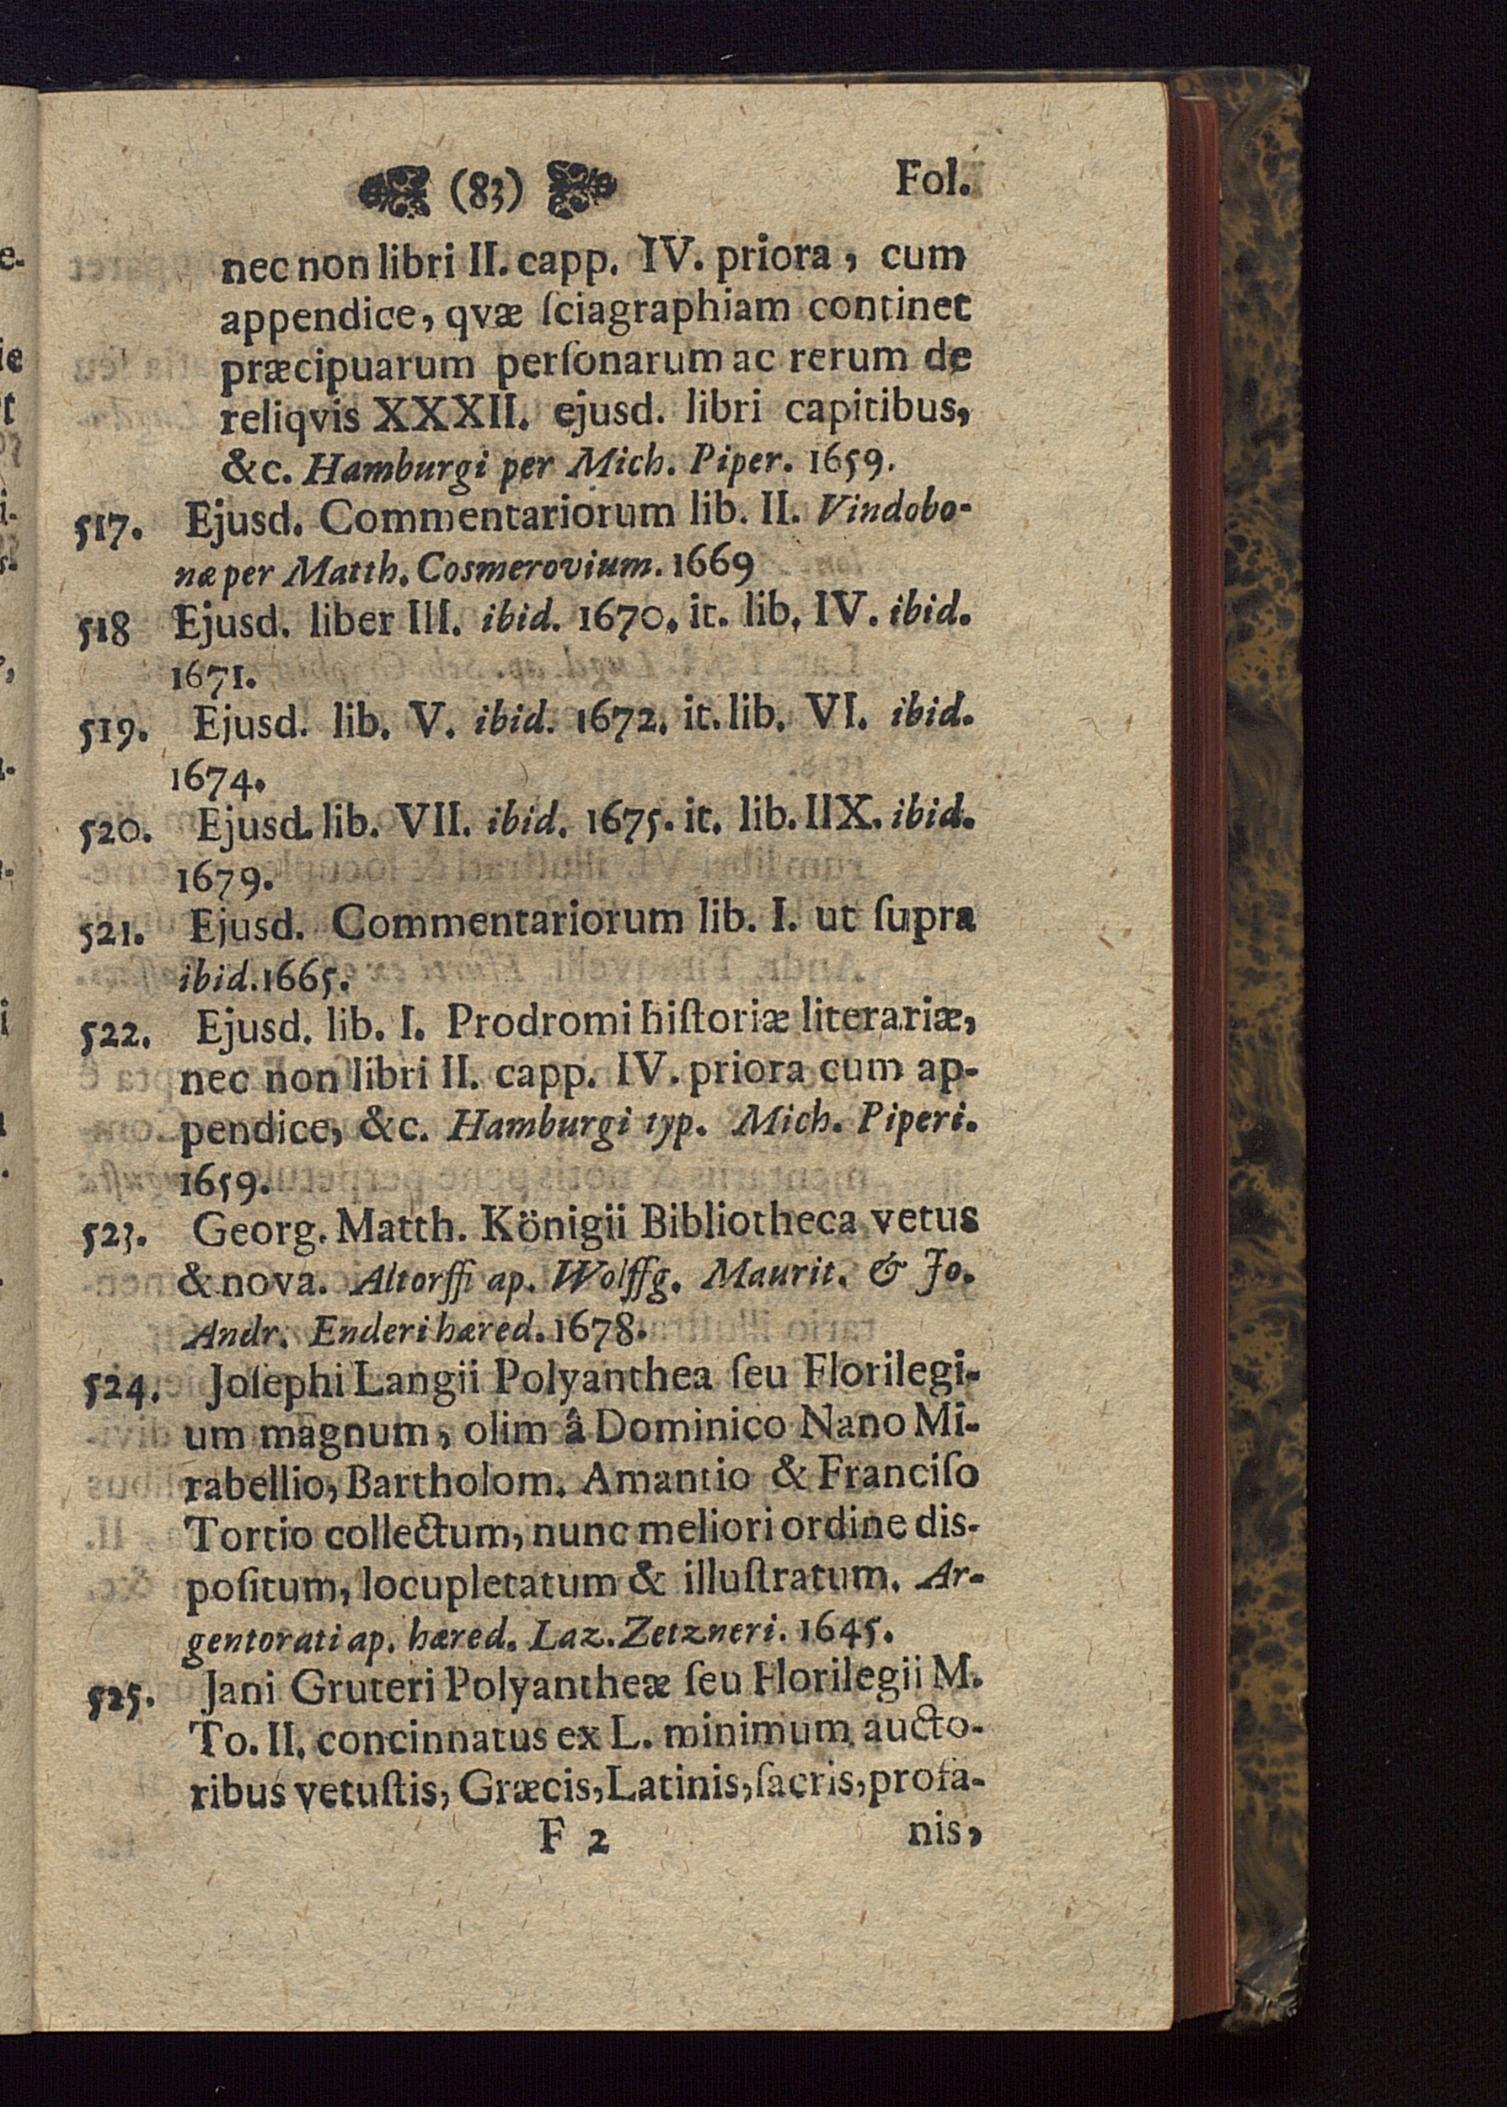 (83) Fol.
nec non libri II. capp. IV. priora, cum
appendice, qvæ ſciagraphiam continet
præcipuarum perſonarum ac rerum de
reliqvis XXXII. ejusd. libri capitibus,
&c. Hamburgi per Mich. Piper. 1659.
517. Ejusd. Commentariorum lib. II. Vindobo-
næ per Matth. Cosmerovium. 1669
518 Ejusd. liber III. ibid. 1670. it. lib. IV. ibid.
1671.
519. Ejusd. lib. V. ibid. 1672. it. lib. VI. ibid.
1674.
520. Ejusd. lib. VII. ibid. 1675. it. lib. IIX. ibid.
1679.
521. Ejusd. Commentariorum lib. I. ut ſupra
ibid. 1665.
522. Ejusd. lib. I. Prodromi hiſtoriæ literariæ,
nec non libri II. capp. IV. priora cum ap-
pendice, &c. Hamburgi typ. Mich. Piperi.
1659.
523. Georg. Matth. Königii Bibliotheca vetus
& nova. Altorffi ap. Wolffg. Maurit. & Jo.
Andr. Enderi hæred. 1678.
524. Joſephi Langii Polyanthea ſeu Florilegi-
um magnum, olim â Dominico Nano Mi-
rabellio, Bartholom. Amantio & Franciſo
Tortio collectum, nunc meliori ordine dis-
poſitum, locupletatum & illuſtratum. Ar-
gentorati ap. hæred. Laz. Zetzneri. 1645.
525. Jani Gruteri Polyantheæ ſeu Florilegii M.
To. II. concinnatus ex L. minimum aucto-
ribus vetuſtis, Græcis, Latinis, ſacris, profa-
F 2 nis,